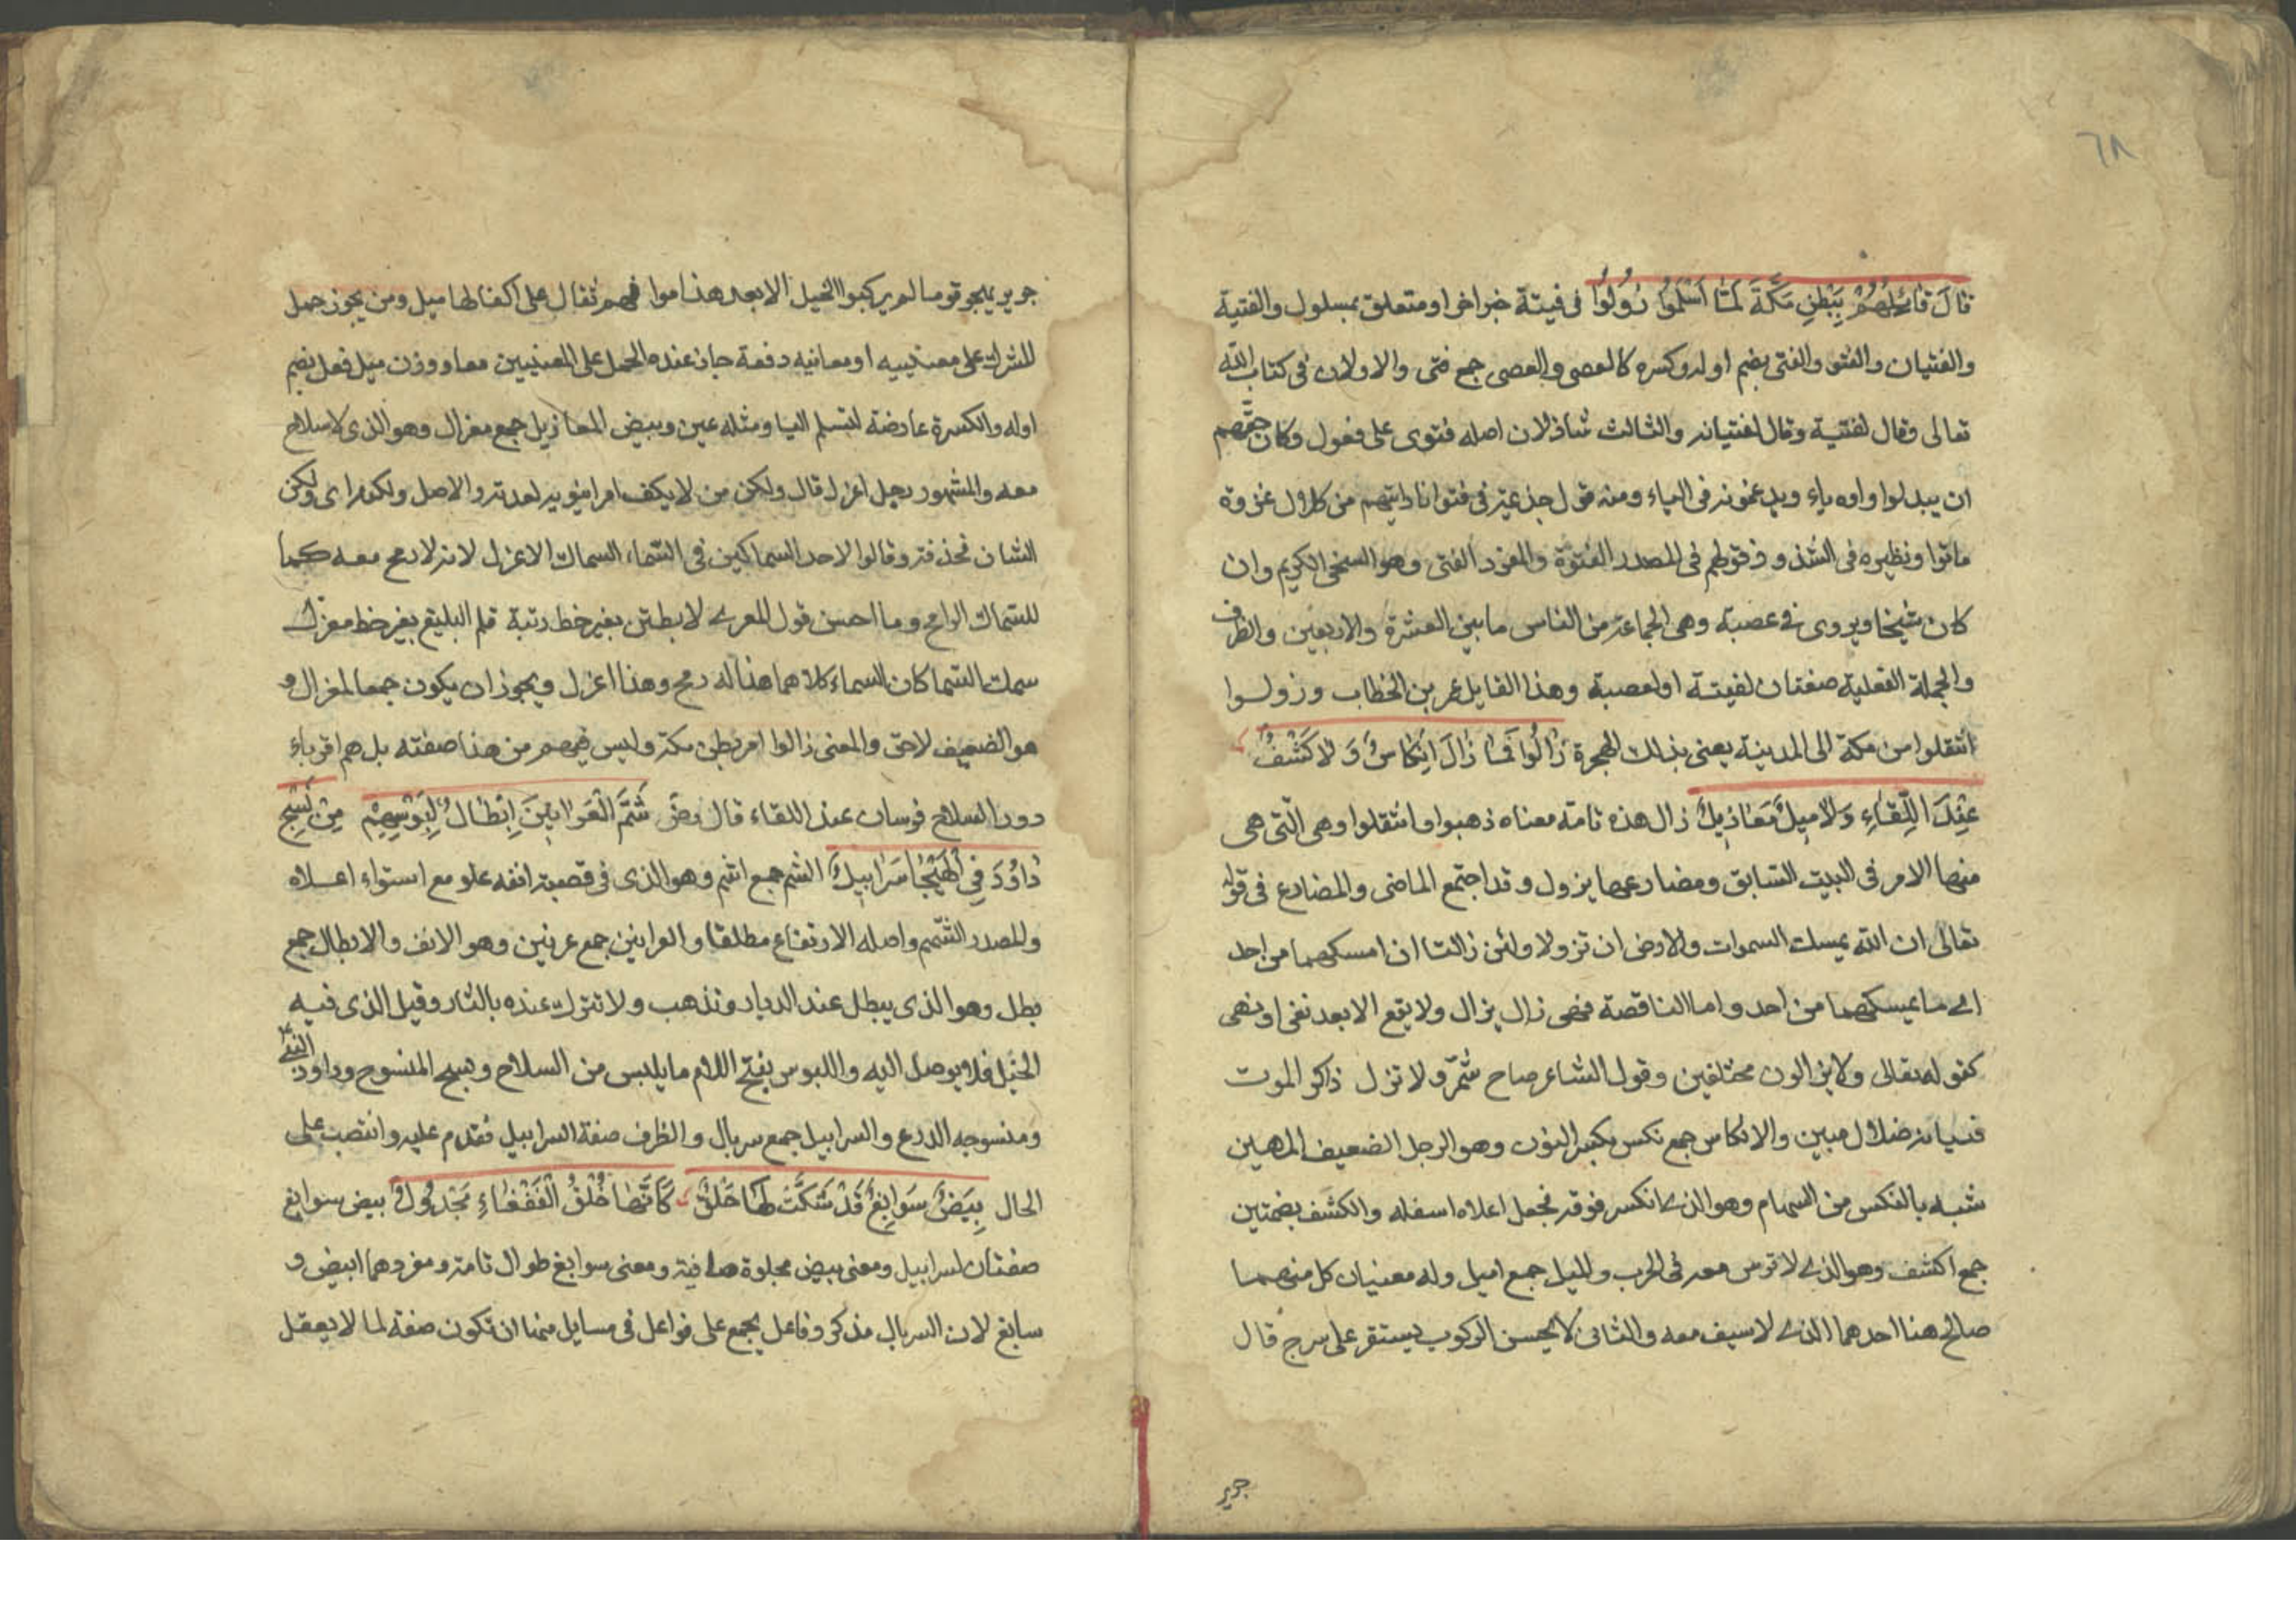 ٦٨
قَالَ قَائِلُهُمْ بِبَطْنِ مَكَّةَ لَمَّا اَسْلَمُوا زُولُوا فى فيتة خبر اخر او متعلق بمسلول والفتية
والفتيان والفتو والفتى بضم اوله وكسره كالعصى والعصى جمع فتى والاولان فى كتاب الله
تعالى وقال لفتيـة وقال لفتيانه والثالث شاذ لان اصله فتوى على فعول وكان حقهم
ان يبدلوا واوه ياء ويدغمونه فى الياء ومنه قول جذيمة فى فتو انا رايتهم من كلال غزوة
ماتوا ونظيره فى الشذوذ قولهم فى المصدر الفتوة والمفرد الفتى وهو السخى الكريم وان
كان شيخا ويروى فى عصبة وهى الجماعة من الناس ما بين العشرة والاربعين والظرف
والجملة الفعلية صفتان لفيتـة او لعصبة وهذا القايل عمر بن الخطاب وزولـوا
انتقلوا من مكة الى المدينة يعنى بذلك الهجرة زَالُوا فَمَا زَالَ اَنْكَاسٌ وَ لَا كُشُفٌ
عِنْدَ اللِّقَاءِ وَلَا مِيلٌ مَعَازِيلُ زال هذه تامة معناه ذهبوا وانتقلوا وهى الّتى هى
منها الامر فى البيت السّابق ومضارعها يزول وقد اجتمع الماضى والمضارع فى قوله
تعالى ان الله يمسك السموات والارض ان تزولا ولئن زالتا ان امسكهما من احد
اى ما يمسكهما من احد واما الناقصة فهى زال يزال ولا يقع الا بعد نفى او نهى
كقوله تعالى ولا يزالون مختلفين وقول الشاعر صاح شمّر ولا تزل ذاكر الموت
فنسيانه ضلال مبين والانكاس جمع نكس بكسر النون وهو الرجل الضعيف المهين
شبه بالنكس من السهام وهو الذى انكسر فوقه فجعل اعلاه اسفله والكشف بضمتين
جمع اكشف وهو الذى لا ترس معه فى الحرب والميل جمع اميل وله معنيان كل منهمـا
صالح هنا احدهما الذى لا سيف معه والثانى لا يحسن الركوب يستقر على سرج قال
جرير
جرير يهجو قوما لم يركبوا الخيل الا بعد هذاموا فهم ثقال على اكفالها ميل ومن يجوز حمل
المشرك على معنييه او معانيه دفعة جاز عنده الحمل على المعنيين معا ووزن ميل فعل بضم
اوله والكسرة عارضة لتسلم اليا ومثله عين وبيض المعازيل جمع معزال وهو الذى لا سلاح
معه والمشهور رجل اعزل قال ولكن من لا يكف امرا ينوبه لعدته والاصل ولكنه اى ولكن
الشان فحذفه وقالوا لاحد السماكين فى السّماء السماك الاعزل لانه لا رمح معـه كما
للسّماك الرامح وما احسن قول المعرى لا بطلبن بغير خط رتبة قلم البليغ بغير خط مغزل
سمك السّما كان السماء كلاهما هذا له رمح وهذا اعزل ويجوز ان يكون جمعا لمعزال و
هو الضعيف لاحق والمعنى زالوا امر بطن مكة وليس فيهم من هذا صفته بل هم اقوياء
دورا السلاح فرسان عند اللقاء قال رضى شُمُّ الْعَرَانِينَ اَبْطَالٌ لَبُوسُهُمْ مِنْ نَسْجِ
دَاوُدَ فِى الْهَيْجَا سَرَابِيلُ الشم جمع اشم وهو الذى فى قصبة انفه علو مع استواء اعـلاه
والمصدر الشّمم واصله الارتفاع مطلقا والعرانين جمع عرنين وهو الانف والابطال جمع
بطل وهو الذى يبطل عند الديار وتذهب ولا تترك عنده بالثار وقيل الذى فيـه
الحيل فلا يوصل اليه واللبوس بفتح اللام ما يلبس من السلاح ونسج المنسوج وداود النبى
ومنسوجه الدرع والسرابيل جمع سربال والظرف صفة السرابيل فقدم عليه وانتصب على
الحال بِيضٌ سَوَابِغُ قَدْ شُكَّتْ لَهَا حَلَقٌ كَاَنَّهَا حَلَقُ الْقَفْعَاءِ مَجْدُولُ بيض سوابغ
صفتان لسرابيل ومعنى بيض مجلوة صافية ومعنى سوابغ طوال تامة ومفردهما ابيض و
سابغ لان السربال مذكر وفاعل يجمع على فواعل فى مسايل منها ان تكون صفة لما لا يعقل